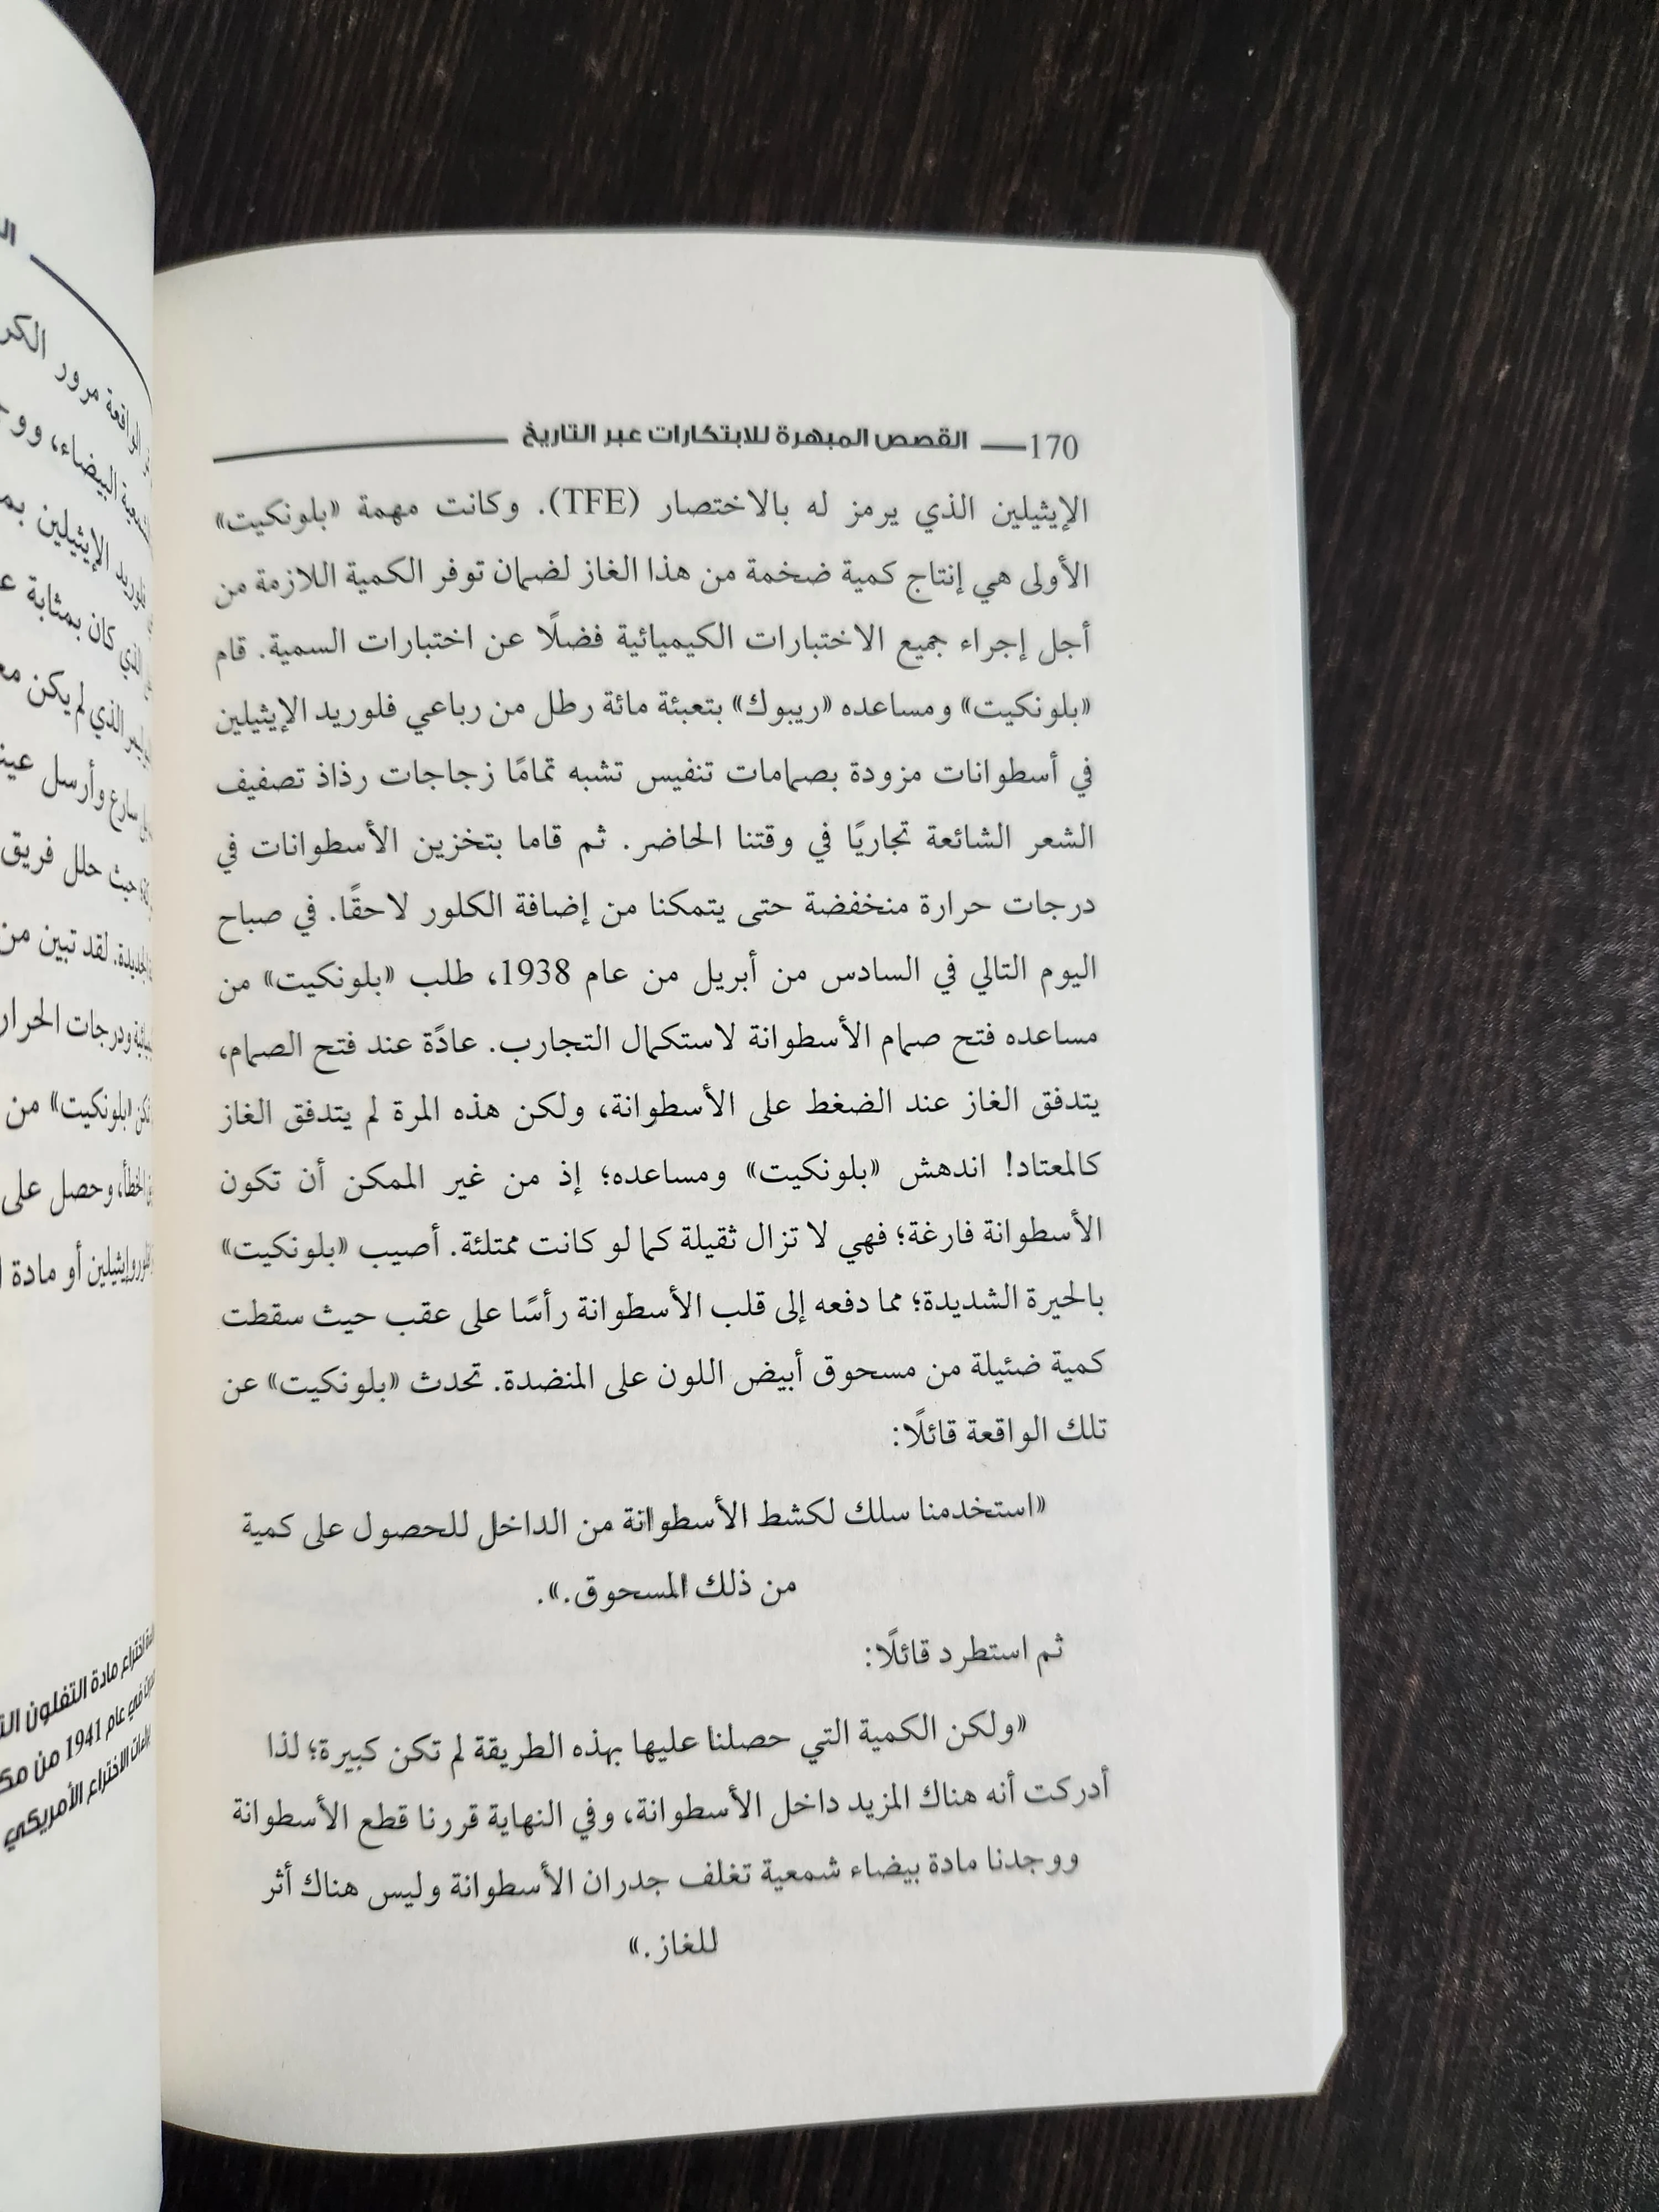 170 القصص المبهرة للابتكارات عبر التاريخ
الإيثيلين الذي يرمز له بالاختصار (TFE). وكانت مهمة «بلونكيت»
الأولى هي إنتاج كمية ضخمة من هذا الغاز لضمان توفر الكمية اللازمة من
أجل إجراء جميع الاختبارات الكيميائية فضلًا عن اختبارات السمية. قام
«بلونكيت» ومساعده «ريبوك» بتعبئة مائة رطل من رباعي فلوريد الإيثيلين
في أسطوانات مزودة بصمامات تنفيس تشبه تمامًا زجاجات رذاذ تصفيف
الشعر الشائعة تجاريًا في وقتنا الحاضر. ثم قاما بتخزين الأسطوانات في
درجات حرارة منخفضة حتى يتمكنا من إضافة الكلور لاحقًا. في صباح
اليوم التالي في السادس من أبريل من عام 1938، طلب «بلونكيت» من
مساعده فتح صمام الأسطوانة لاستكمال التجارب. عادًة عند فتح الصمام،
يتدفق الغاز عند الضغط على الأسطوانة، ولكن هذه المرة لم يتدفق الغاز
كالمعتاد! اندهش «بلونكيت» ومساعده؛ إذ من غير الممكن أن تكون
الأسطوانة فارغة؛ فهي لا تزال ثقيلة كما لو كانت ممتلئة. أصيب «بلونكيت»
بالحيرة الشديدة؛ مما دفعه إلى قلب الأسطوانة رأسًا على عقب حيث سقطت
كمية ضئيلة من مسحوق أبيض اللون على المنضدة. تحدث «بلونكيت» عن
تلك الواقعة قائلًا:
«استخدمنا سلك لكشط الأسطوانة من الداخل للحصول على كمية
من ذلك المسحوق.».
ثم استطرد قائلًا:
«ولكن الكمية التي حصلنا عليها بهذه الطريقة لم تكن كبيرة؛ لذا
أدركت أنه هناك المزيد داخل الأسطوانة، وفي النهاية قررنا قطع الأسطوانة
ووجدنا مادة بيضاء شمعية تغلف جدران الأسطوانة وليس هناك أثر
للغاز.»
الواقعة مرور
البيضاء،
الإيثيلين
الذي كان بمثابة
الذي لم يكن
سارع وأرسل
حيث حلل فريق
لقد تبين من
ودرجات
«بلونكيت» من
وحصل على
أو مادة
اختراع مادة التفلون
في عام 1941 من
الاختراع الأمريكي